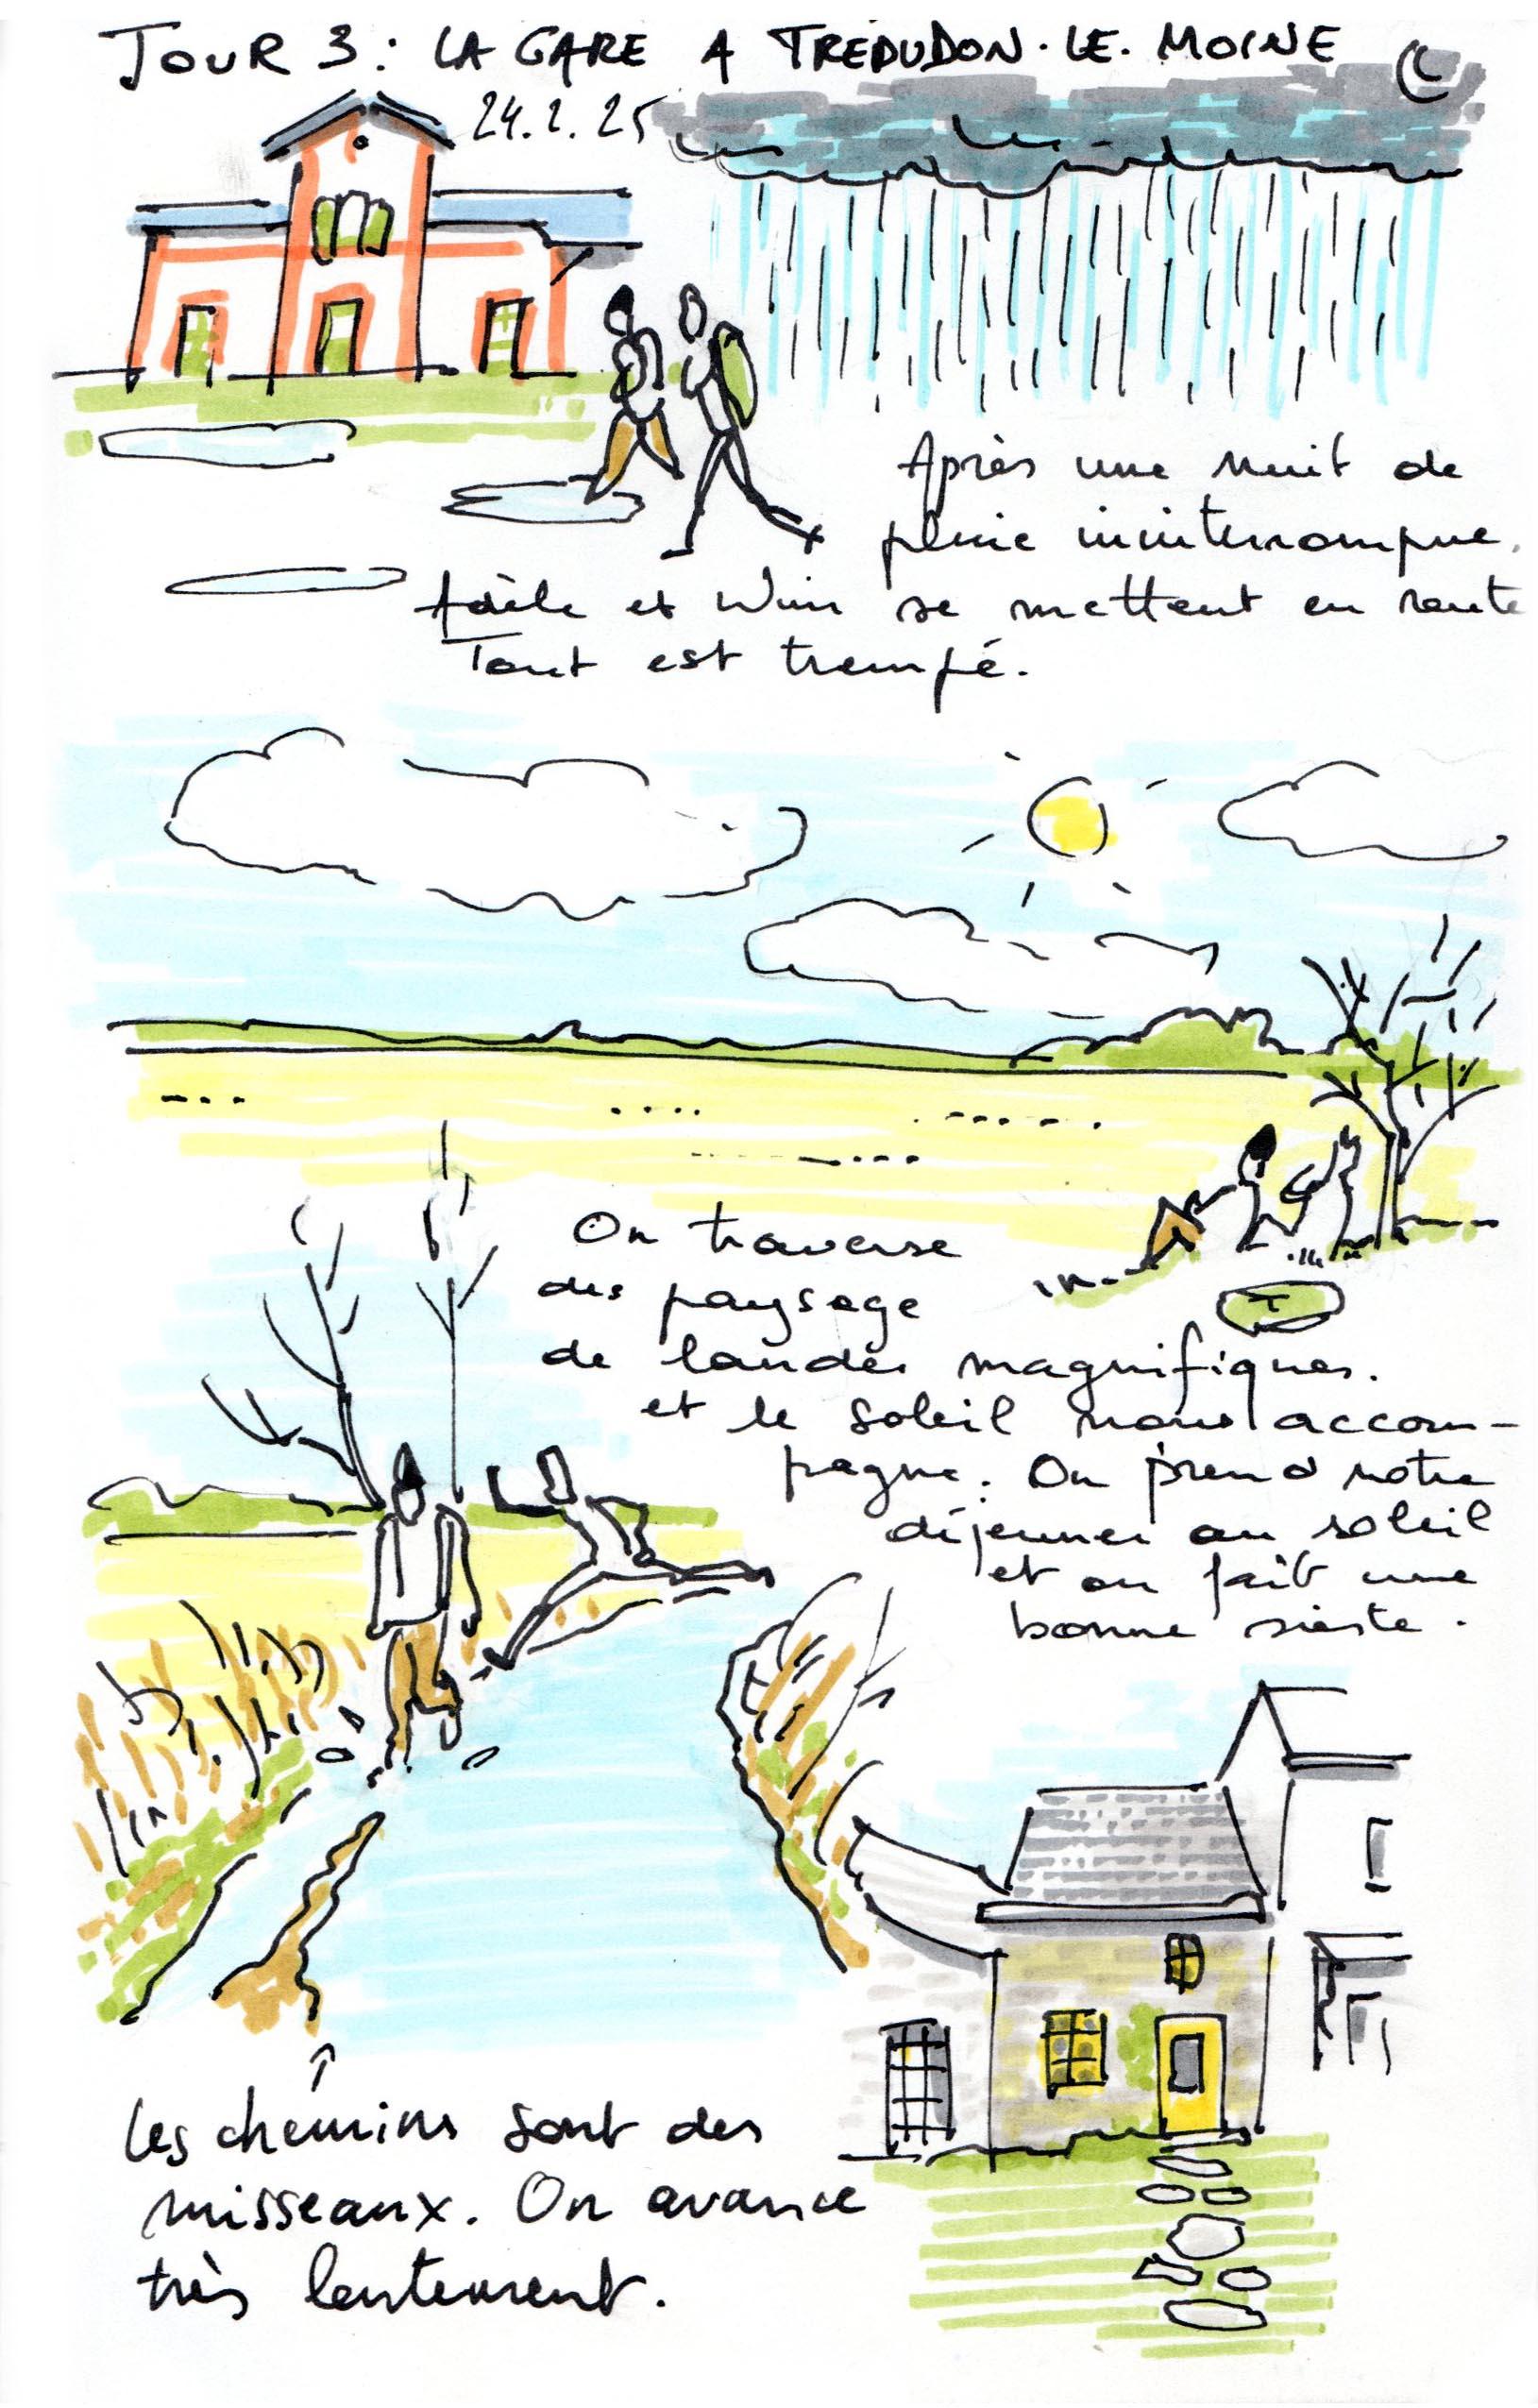 JOUR 3 : LA GARE A TREDUDON. LE. MOINE
24.2.25
Après une nuit de
pluie ininterrompue,
Adèle et Wim se mettent en route
Tout est trempé.
On traverse
des paysage
de landes magnifiques.
et le soleil nous accom-
pagne. On prend notre
déjeuner au soleil
et on fait une
bonne sieste.
Les chemins sont des
ruisseaux. On avance
très lentement.